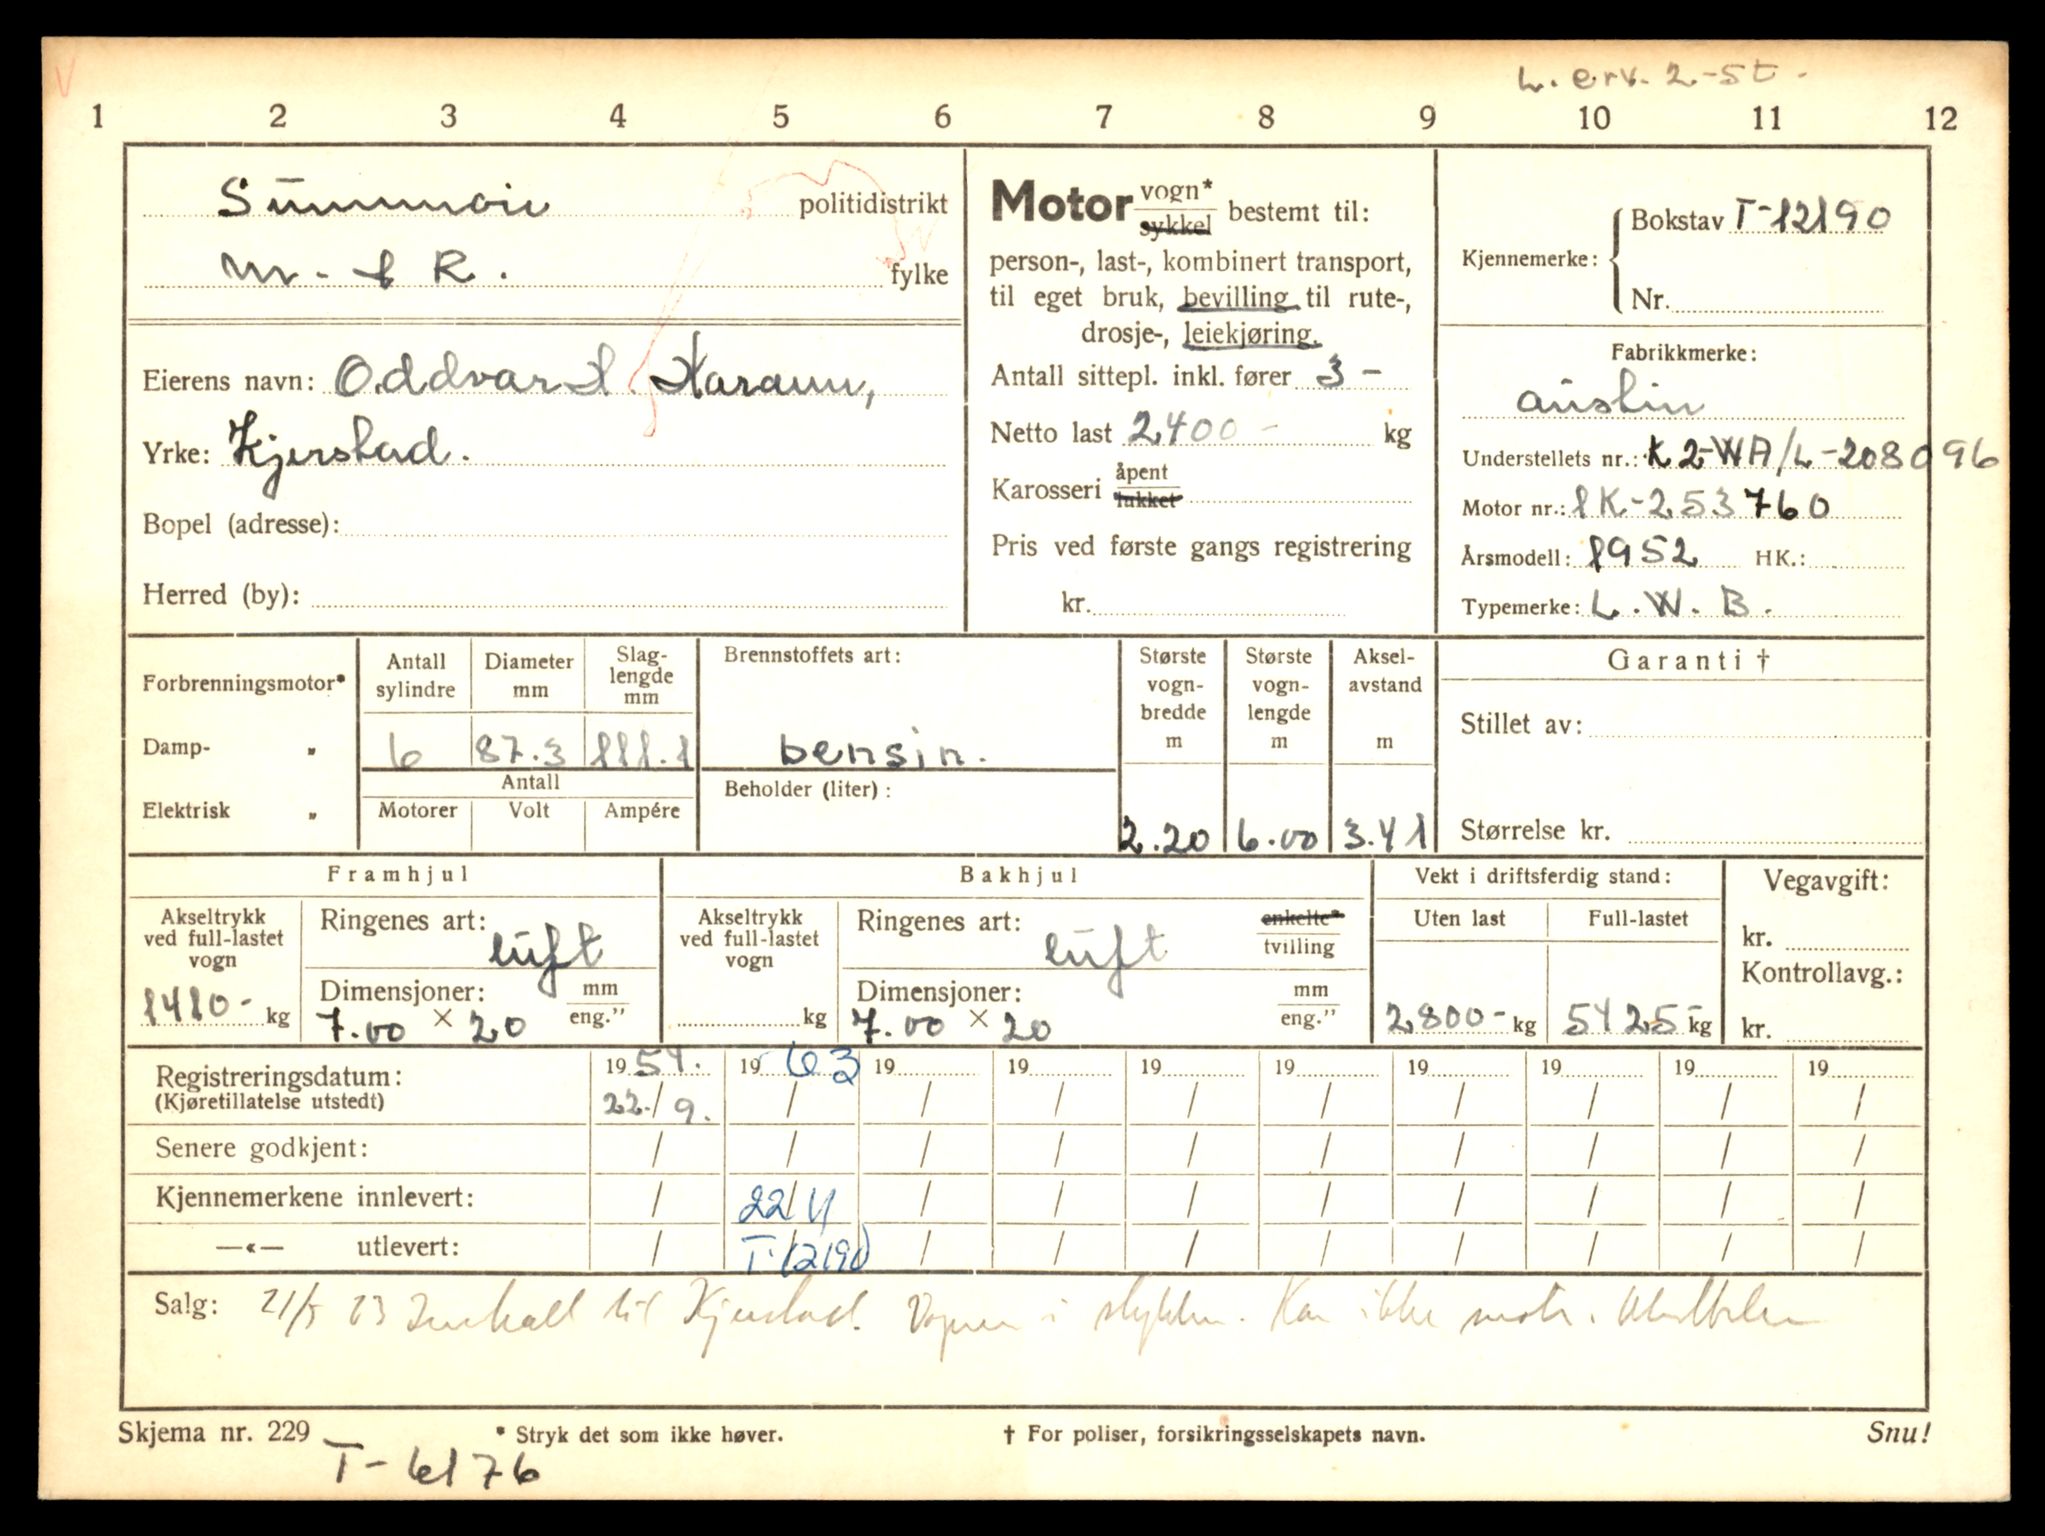 L. erv. 2-5t -
1 2 3 4 5 6 7 8 9 10 11 12
Sunnmøre politidistrikt
M. & R. fylke
Eierens navn: Oddvar K. Haram,
Yrke: Kjerstad.
Bopel (adresse):
Herred (by):
Motor vogn* sykkel bestemt til:
person-, last-, kombinert transport,
til eget bruk, bevilling til rute-,
drosje-, leiekjøring.
Antall sittepl. inkl. fører 3 -
Netto last 2400 - kg
Karosseri åpent lukket
Pris ved første gangs registrering
kr.
Kjennemerke: Bokstav T-12190
Nr.
Fabrikkmerke:
Austin
Understellets nr.: K2-WA/L-208096
Motor nr.: 1K-253760
Årsmodell: 1952 HK.:
Typemerke: L.W.B.
Forbrenningsmotor*
Damp- „
Elektrisk „
Antall sylindre
Diameter mm
Slag-lengde mm
6 87.3 111.1
Antall
Motorer Volt Ampére
Brennstoffets art:
bensin.
Beholder (liter):
Største vogn-bredde m
2.20
Største vogn-lengde m
6.00
Aksel-avstand m
3.41
Garanti †
Stillet av:
Størrelse kr.
Framhjul
Akseltrykk ved full-lastet vogn
1410- kg
Ringenes art: luft
Dimensjoner: mm eng."
7.00 × 20
Bakhjul
Akseltrykk ved full-lastet vogn
kg
Ringenes art: luft enkelte* tvilling
Dimensjoner: mm eng."
7.00 × 20
Vekt i driftsferdig stand:
Uten last Full-lastet
2800- kg 5425- kg
Vegavgift:
kr.
Kontrollavg.:
kr.
Registreringsdatum: 1954. 1963 19 19 19 19 19 19 19 19
(Kjøretillatelse utstedt) 22./9. / / / / / / / / /
Senere godkjent: / / / / / / / / / /
Kjennemerkene innlevert: / 22/ / / / / / / / /
—«— utlevert: / T-12190 / / / / / / / /
Salg: 21/5 63 Innkalt til Kjerstad. Vognen i stykker. Kan ikke
Skjema nr. 229 * Stryk det som ikke høver. † For poliser, forsikringsselskapets navn. Snu!
T-6176